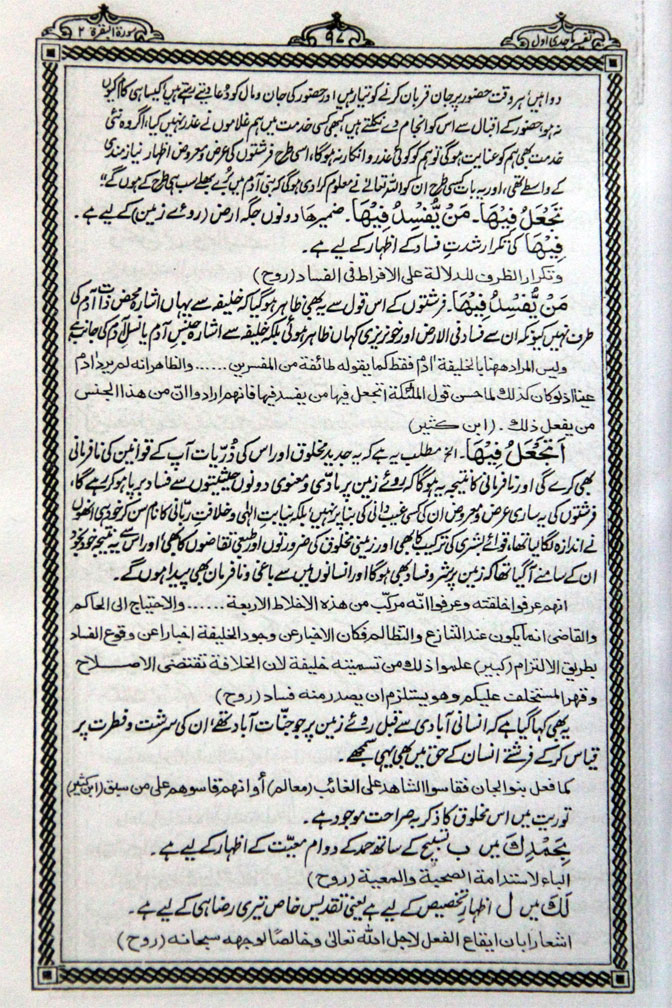 تفسیر ماجدی اول
۹۷
سورۃ البقرۃ ۲
دوا ہیں، ہر وقت حضور پر جان قربان کرنے کو تیار ہیں اور حضور کی جان و مال کو دُعا دیتے رہتے ہیں، کیسا ہی کام کیوں
نہ ہو، حضور کے اقبال سے اس کو انجام دے نکلتے ہیں، کبھی کسی خدمت میں ہم غلاموں نے عذر نہیں کیا، اگر وہ نئی
خدمت بھی ہم کو عنایت ہوگی تو ہم کو کوئی عذر و انکار نہ ہوگا، اسی طرح فرشتوں کی عرض معروض اظہار نیازمندی
کے واسطے تھی، اور یہ بات کسی طرح ان کو اللہ تعالےٰ نے معلوم کرا دی ہوگی کہ بنی آدم میں بُرے بھلے سب ہی طرح کے ہوں گے"
تَجْعَلُ فِيْهَا۔ مَنْ يُّفْسِدُ فِيْهَا۔ ضمیر ھا دونوں جگہ ارض (روئے زمین) کے لیے ہے۔
فِيْهَا کی تکرار شدتِ فساد کے اظہار کے لیے ہے۔
وتکرار الظرف للدلالة علی الافراط فی الفساد (روح)
مَنْ يُّفْسِدُ فِيْهَا۔ فرشتوں کے اس قول سے یہ بھی ظاہر ہو گیا کہ خلیفہ سے یہاں اشارہ محض ذات آدم کی
طرف نہیں کیونکہ ان سے فساد فی الارض اور خونریزی کہاں ظاہر ہوئی بلکہ خلیفہ سے اشارہ جنس آدم یا نسل آدم کی جانب ہے
ولیس المراد ھھنا بالخلیفة اٰدم فقط کما یقوله طائفة من المفسرین ...... والظاھر انه لم یرد اٰدم
عینا اذ لو کان کذلك لما حسن قول الملٰئکة اتجعل فیها من یفسد فیها فانهم ارادوا انّ من ھذا الجنس
من یفعل ذلك۔ (ابن کثیر)
اَتَجْعَلُ فِيْهَا۔ الخ مطلب یہ ہے کہ یہ جدید مخلوق اور اس کی ذُرّیات آپ کے قوانین کی نافرمانی
بھی کرے گی اور نافرمانی کا نتیجہ یہ ہوگا کہ روئے زمین پر مادّی و معنوی دونوں حیثیتوں سے فساد برپا ہو کر رہے گا،
فرشتوں کی یہ ساری عرض و معروض ان کی کسی غیب دانی کی بنا پر نہیں، بلکہ نیابتِ الٰہی و خلافتِ ربّانی کا نام سن کر خود ہی انھوں
نے اندازہ لگا لیا تھا، قوائے بشری کی ترکیب کا بھی اور زمینی مخلوق کی ضرورتوں اور طبعی تقاضوں کا بھی اور اس سے یہ نتیجہ خود بخود
ان کے سامنے آگیا تھا کہ زمین پر شر و فساد بھی ہوگا اور انسانوں میں سے باغی و نافرمان بھی پیدا ہوں گے۔
انهم عرفوا خلقته وعرفوا انه مرکّب من ھذہ الاخلاط الاربعة ...... والاحتیاج الی الحاکم
والقاضی انما یکون عند التنازع والتظالم فکان الاخبار عن وجود الخلیفة اخبارا عن وقوع الفساد
بطریق الالتزام (کبیر) علموا ذلك من تسمیته خلیفة لان الخلافة تقتضی الاصلاح
وقهر المستخلف علیکم وھو یستلزم ان یصدر منه فساد (روح)
یہ بھی کہا گیا ہے کہ انسانی آبادی سے قبل روئے زمین پر جو جنّات آباد تھے، ان کی سرشت و فطرت پر
قیاس کر کے فرشتے انسان کے حق میں بھی یہی سمجھے۔
کما فعل بنو الجان فقاسوا الشاھد علی الغائب (معالم) أو انهم قاسوھم علی من سبق (ابن کثیر)
توریت میں اس مخلوق کا ذکر بہ صراحت موجود ہے۔
بِحَمْدِكَ میں ب تسبیح کے ساتھ حمد کے دوام معیّت کے اظہار کے لیے ہے۔
الباء لاستدامة الصحبة والمعیة (روح)
لَكَ میں ل اظہارِ تخصیص کے لیے ہے یعنی تقدیس خاص تیری رضا ہی کے لیے ہے۔
اشعارا بان ایقاع الفعل لاجل الله تعالیٰ وخالصًا لوجهه سبحانه (روح)